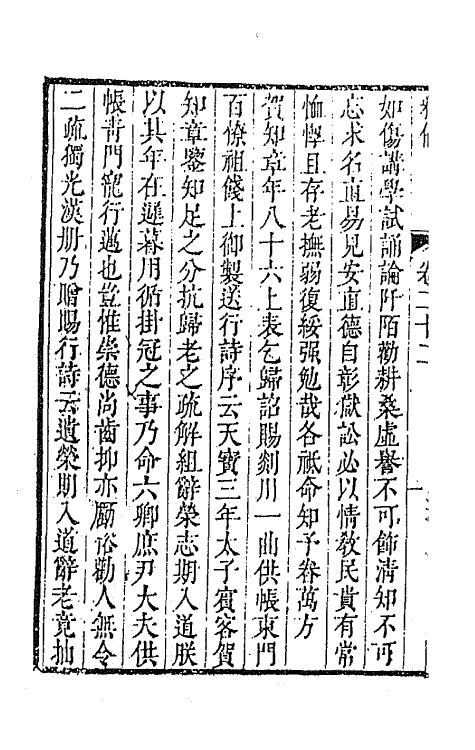 卷二十二
如傷講學試誦論阡陌勸耕桑虛譽不可飾清知不可
忘求名直易見安直德自彰獄訟必以情教民貴有常
恤惸且存老撫弱復綏强勉哉各祗命知予眷萬方
賀知章年八十六上表乞歸詔賜剡川一曲供帳東門
百僚祖餞上御製送行詩序云天寶三年太子賓客賀
知章鑒知足之分抗歸老之疏解組辭榮志期入道朕
以其年在遲暮用循掛冠之事乃命六卿庶尹大夫供
帳青門寵行邁也豈惟崇德尚齒抑亦勵俗勸人無令
二疏獨光漢册乃贈賜行詩云遺榮期入道辭老竟抽